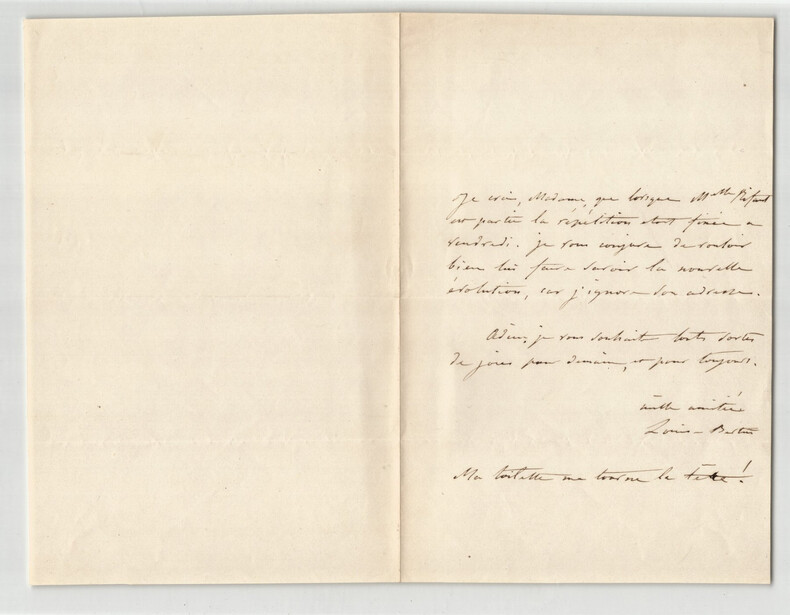 Je crois, Madame, que lorsque Melle
est partie la répétition était fixée a
vendredi. je vous conjure de vouloir
bien lui faire savoir la nouvelle
évolution, car j'ignore son adresse.
Adieu, je vous souhaite toutes sortes
de joies pour demain, et pour toujours.
mille amitiés
Louise Bertin
Ma toilette me tourne la tête !